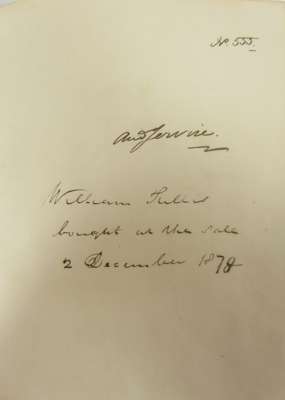 No. 555.
and Service.
William
bought at the sale
2 December 1878